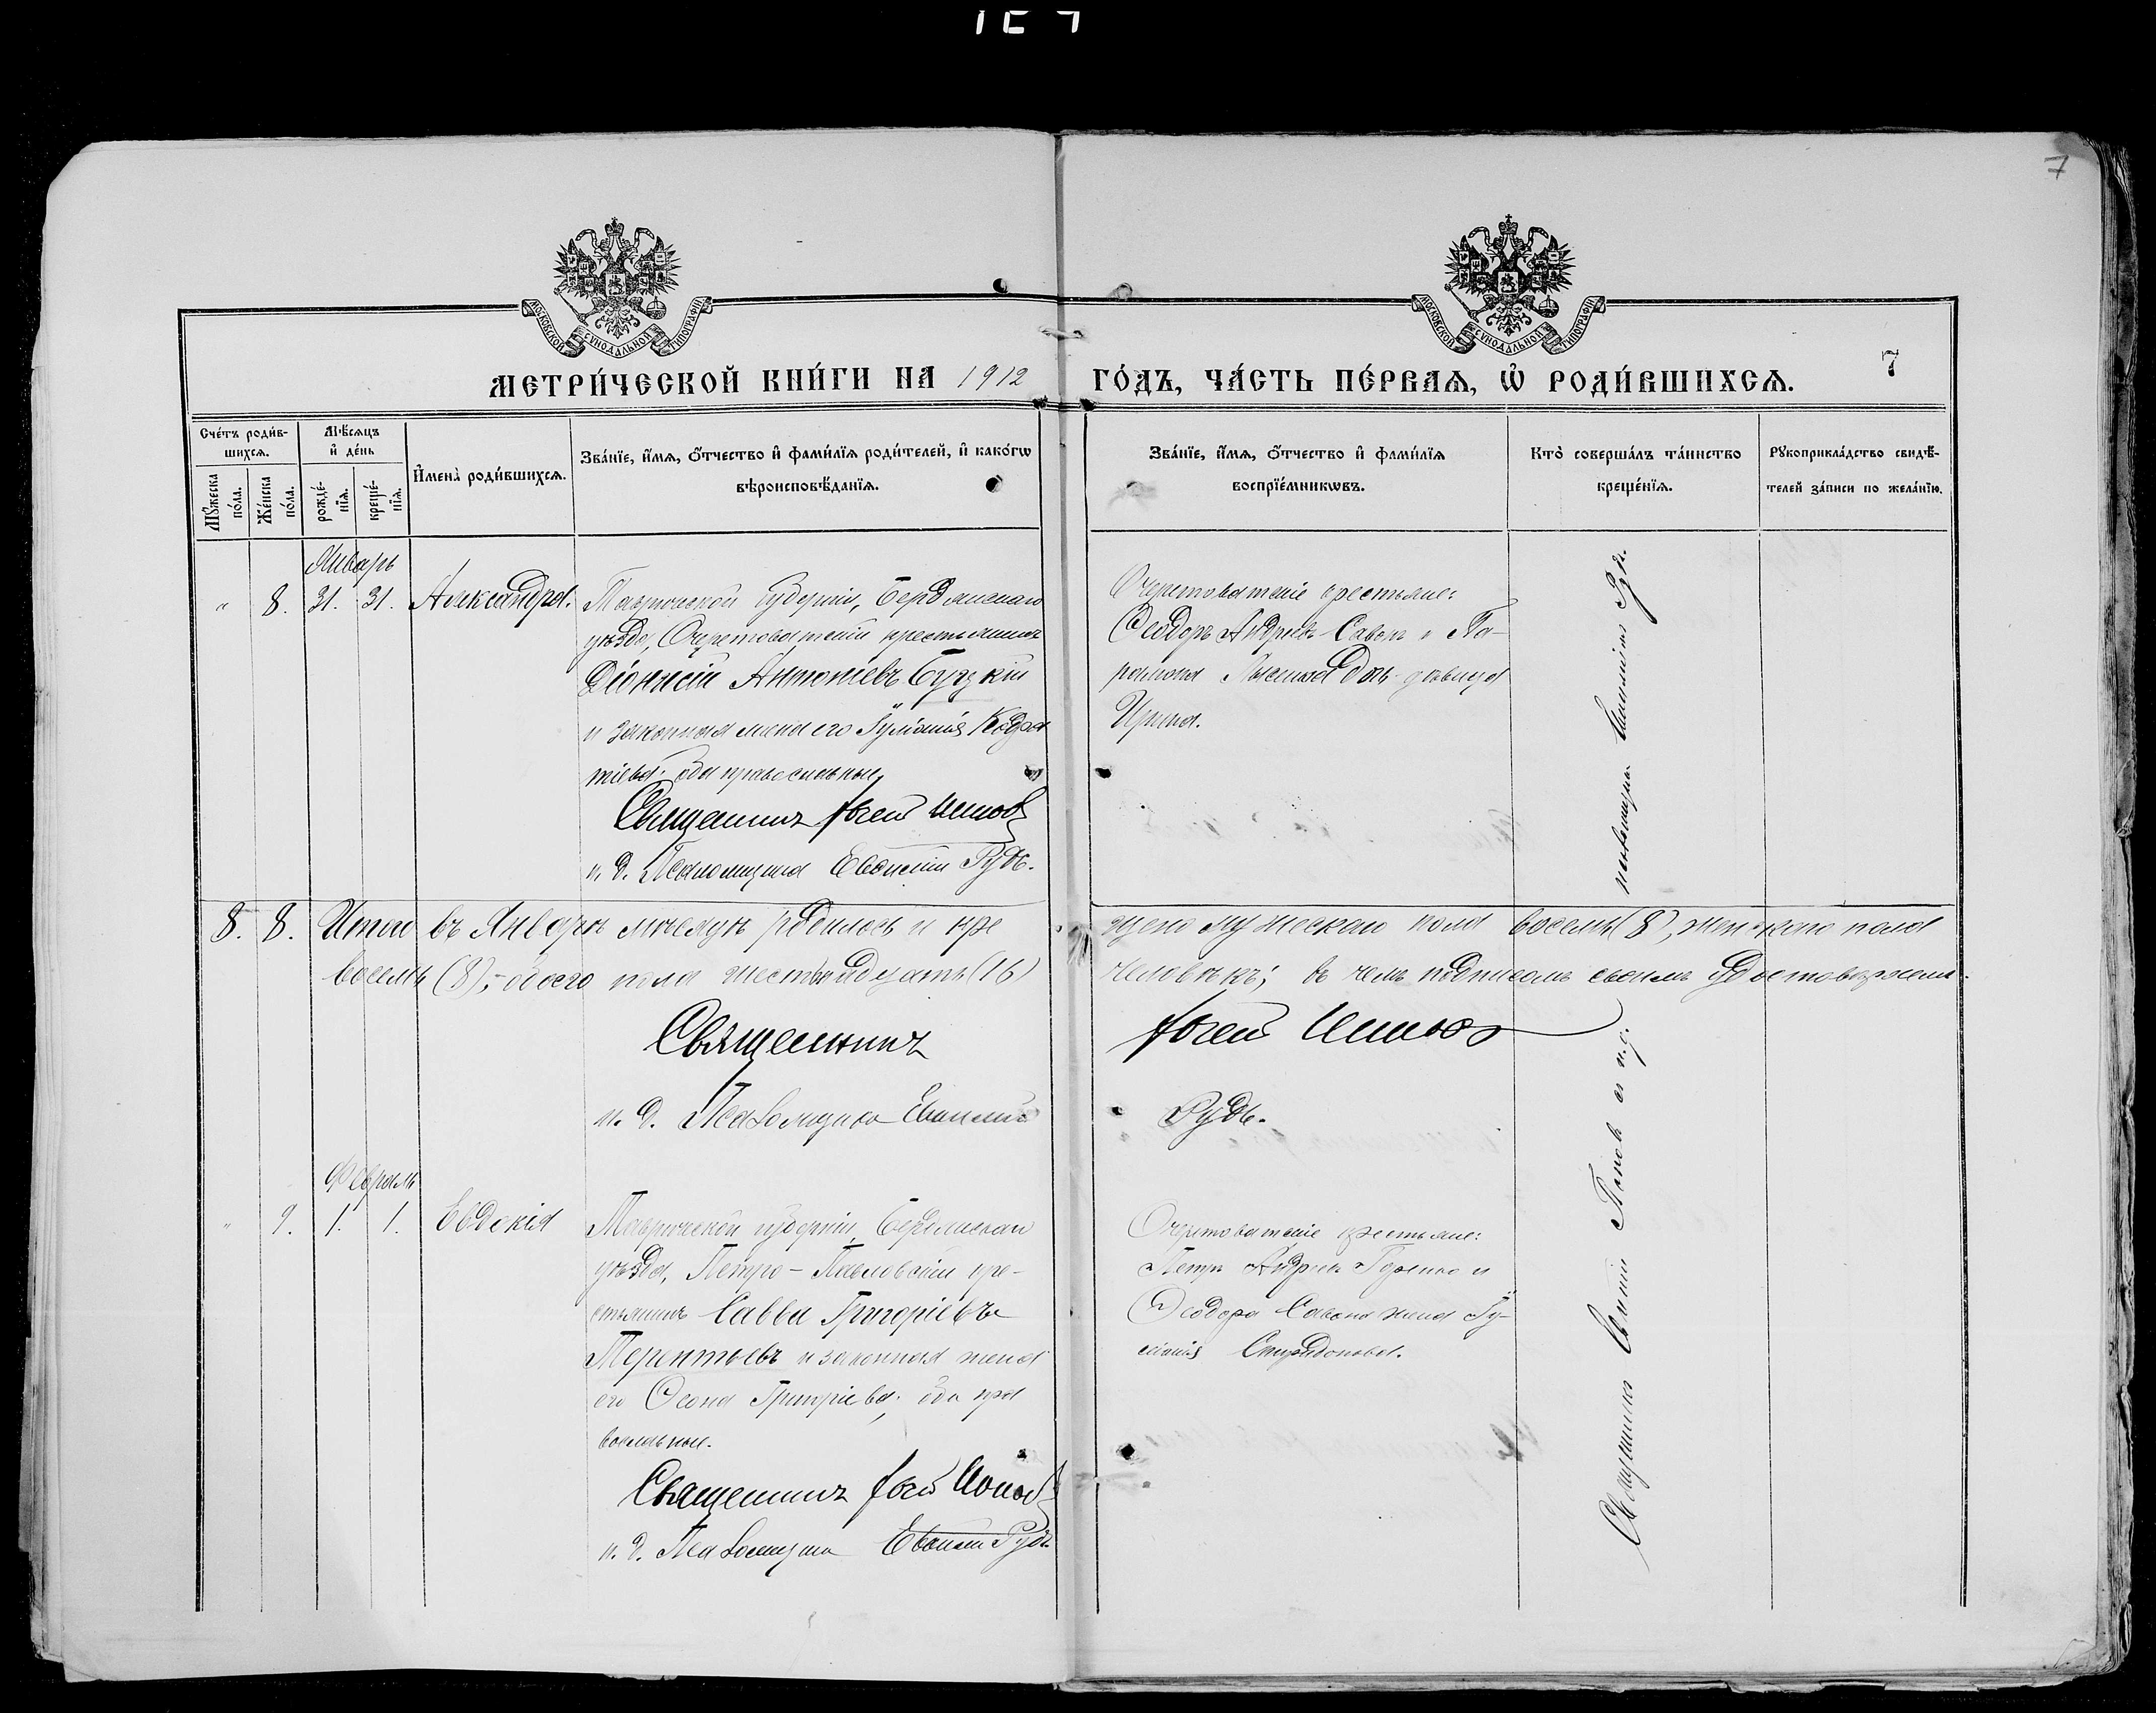 7
МОСКОВСКОЙ СѴНОДАЛЬНОЙ ТИПОГРАФІИ
МОСКОВСКОЙ СѴНОДАЛЬНОЙ ТИПОГРАФІИ
МЕТРИ́ЧЕСКОЙ КНИ́ГИ НА 1912 ГО́ДЪ, ЧА́СТЬ ПЕ́РВАѦ, Ѡ҆ РОДИ́ВШИХСѦ. 7
Сче́тъ роди́в-
шихсѧ.
Мꙋ́жеска по́ла.
Же́нска по́ла.
Мѣ́сѧцъ
и҆ де́нь
рожде́-
нїѧ.
креще́-
нїѧ.
И҆мена̀ роди́вшихсѧ.
Зва́нїе, и҆́мѧ, ѻ҆́тчество и҆ фами́лїѧ роди́телей, и҆ како́гѡ
вѣроисповѣ́данїѧ.
Зва́нїе, и҆́мѧ, ѻ҆́тчество и҆ фами́лїѧ
воспрїе́мникѡвъ.
Кто̀ соверша́лъ та́инство
креще́нїѧ.
Рꙋкоприкла́дство свидѣ́-
телей за́писи по жела́нїю.
Январь
" 8. 31. 31. Александра.
Таврической губерніи, Бердянскаго
уѣзда, Очеретоватскій крестьянинъ
Діонисій Антоніевъ Буцкій
и законная жена его Іуліанія Кодра
тіева; оба православные.
Священникъ
и. д. Псаломщика Евсигній Рудь.
Очеретоватскіе крестьяне:
Ѳеодоръ Андреевъ Савонъ и Па-
рамона дочь дѣвица
Ирина.
псаломщика Рудь.
8. 8. Итого въ Январѣ мѣсяцѣ родилось и кре
щено мужескаго пола восемь (8), женскаго пола
восемь (8), обоего пола шестнадцать (16)
человѣкъ; въ чемъ подписомъ своимъ удостовѣряемъ.
Священникъ
и. д. Псаломщика
Рудь.
Февраль
" 9. 1. 1. Евдокія
Таврической губерніи, Бердянскаго
уѣзда, Петро-Павловскій кре-
стьянинъ Савва Григоріевъ
Терентьевъ и законная жена
его Григоріева; оба пра
вославные.
Священникъ
и. д. Псаломщика Рудь
Очеретоватскіе крестьяне:
Петръ Андреевъ и
Ѳеодора Савона жена Іу-
ліанія Спиридонова.
Священникъ Попов и и. д.